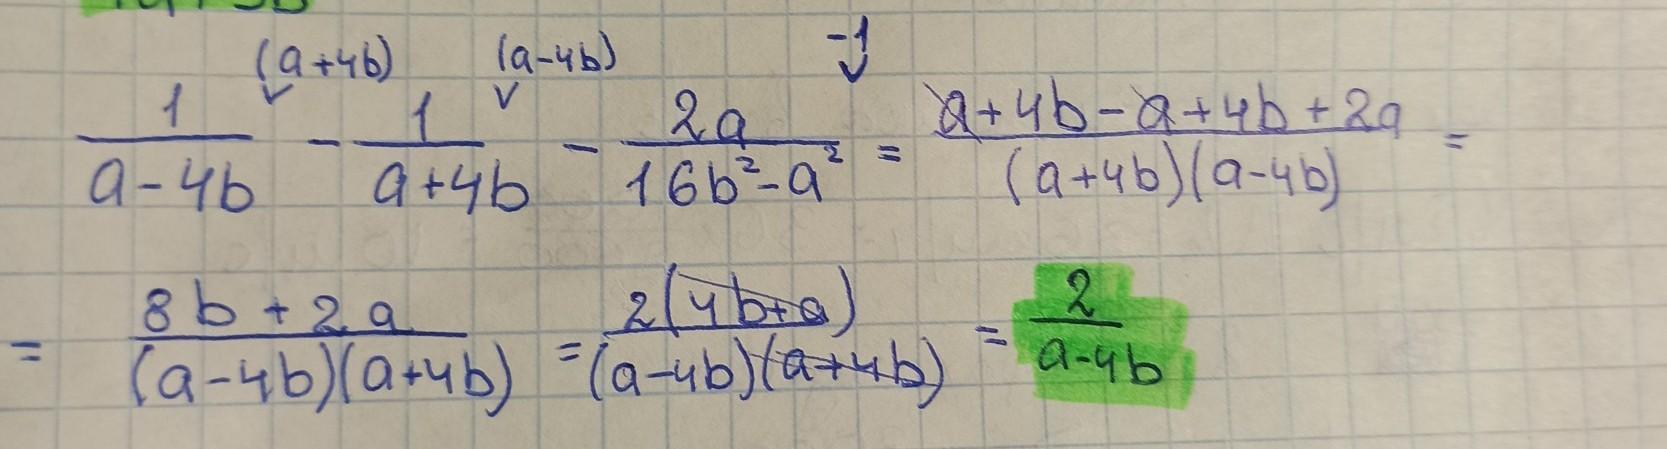 (a+4b) (a-4b) -1
1/(a-4b) - 1/(a+4b) - 2a/(16b²-a²) = (a+4b-a+4b+2a)/((a+4b)(a-4b)) =
= (8b+2a)/((a-4b)(a+4b)) = 2(4b+a)/((a-4b)(a+4b)) = 2/(a-4b)